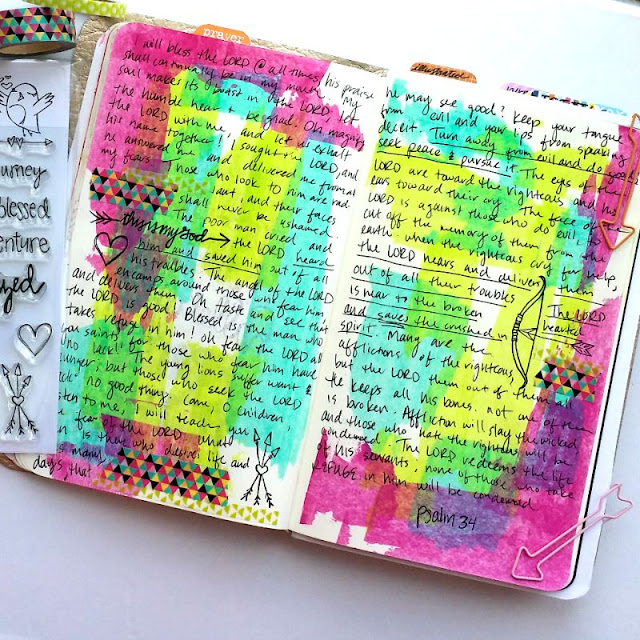 prayer
illustrated
urney
blessed
enture
yed
will bless the LORD @ all times, his praise
shall continually be in my mouth. My
soul makes its boast in the LORD, let
the humble hear & be glad. Oh magnify
the LORD with me, and let us exhalt
his name together! I sought the LORD, and
he answered me and delivered me from all
my fears. Those who look to him are rad-
iant, and their faces
shall never be ashamed.
The poor man cried and
this is my God the LORD heard
him and saved him out of all
his troubles. The angel of the LORD
encamps around those who fear him
and delivers them. Oh taste and see that
the LORD is good! Blessed is the man who
takes refuge in him! oh fear the LORD all
you saints, for those who fear him have
lack! The young lions suffer want &
hunger, but those who seek the LORD
no good thing. Come, O children
listen to me, I will teach you
fear of the LORD. What
is there who desires life and
many
days, that
he may see good? Keep your tongue
from evil and your lips from speaking
deceit. Turn away from evil and do good
seek peace & pursue it. The eyes of the
LORD are toward the righteous and his
ears toward their cry. The face of the
LORD is against those who do evil, to
cut off the memory of them from the
earth. when the righteous cry for help,
the LORD hears and delivers them
out of all their troubles. The LORD
is near to the broken hearted
and saves the crushed in
spirit. Many are the
afflictions of the righteous,
but the LORD them out of them all
He keeps all his bones, not one of them
is broken. Affliction will slay the wicked
and those who hate the righteous will be
condemned. The LORD redeems the life
of his servants, none of those who take
REFUGE in him will be condemned
psalm 34